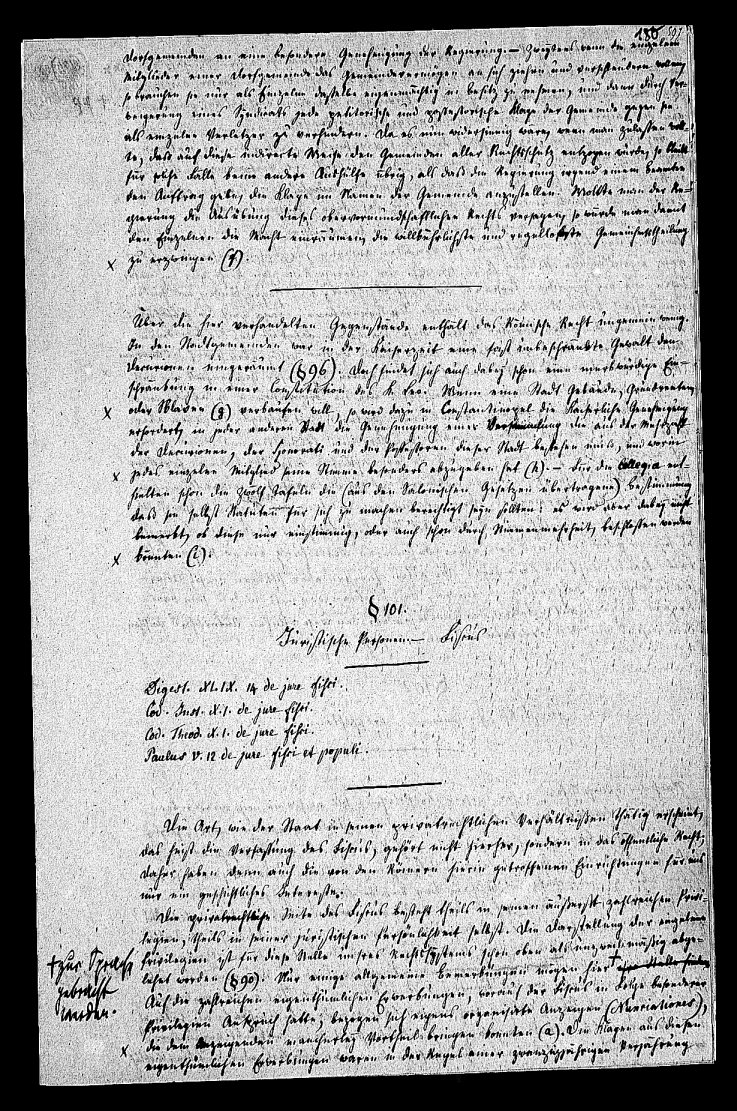 180
Dorfgemeinden an eine besondere Genehmigung der Regierung. — Zweytens wenn die einzelnen
Mitglieder einer Dorfgemeinde das Gemeindevermögen an sich ziehen und verschleudern wollen,
so brauchen sie nur als Einzelne dasselbe eigenmächtig in Besitz zu nehmen, und dann durch Ver-
weigerung eines Syndicats jede petitorische und possessorische Klage der Gemeinde gegen sie
als einzelne Verletzer zu verhindern. Da es nun widersinnig wäre, wenn man zulassen woll-
te, daß auf diese indirecte Weise den Gemeinden aller Rechtsschutz entzogen würde, so bleibt
für solche Fälle keine andere Aushülfe übrig, als daß die Regierung irgend einem Beamten
den Auftrag gebe, die Klage im Namen der Gemeinde anzustellen. Wollte man der Re-
gierung die Ausübung dieses obervormundschaftlichen Rechts versagen, so würde man damit
den Einzelnen die Macht einräumen, die willkührlichste und regelloseste Gemeinheitstheilung
x zu erzwingen (f)
Über die hier verhandelten Gegenstände enthält das Römische Recht ungemein wenig.
In den Stadtgemeinden war in der Kaiserzeit eine fast unbeschränkte Gewalt den
Decurionen eingeräumt (§ 96). Doch findet sich auch dabey schon eine merkwürdige Ein-
schränkung in einer Constitution des K. Leo. Wenn eine Stadt Gebäude, Grundrenten,
x oder Sklaven (g) verkaufen will, so wird dazu in Constantinopel die Kaiserliche Genehmigung
erfordert, in jeder anderen Stadt die Genehmigung einer Versammlung die aus der Mehrzahl
der Decurionen, der Honorati und der Possessoren dieser Stadt bestehen muß, und worin
x jedes einzelne Mitglied seine Stimme besonders abzugeben hat (h). — Für die Collegia ent-
hielten schon die Zwölf Tafeln die (aus den Solonischen Gesetzen übertragene) Bestimmung
daß sie selbst Statuten für sich zu machen berechtigt seyn sollten: es wird aber dabey nicht
bemerkt, ob diese nur einstimmig, oder auch schon durch Stimmenmehrheit, beschlossen werden
x könnten (i).
§ 101.
Juristische Personen — Fiscus
Digest. XLIX. 14 de jure fisci.
Cod. Just. X. 1. de jure fisci.
Cod. Theod. X. 1. de jure fisci.
Paulus V. 12 de jure fisci et populi.
Die Art, wie der Staat in seinen privatrechtlichen Verhältnissen thätig erscheint,
das heißt die Verfassung des Fiscus, gehört nicht hierher, sondern in das öffentliche Recht;
daher haben denn auch die von den Römern hierin getroffenen Einrichtungen für uns
nur ein geschichtliches Interesse.
Die privatrechtliche Seite des Fiscus besteht theils in seinen äußerst zahlreichen Privi-
legien, theils in seiner juristischen Persönlichkeit selbst. Die Darstellung der einzelnen
Privilegien ist für diese Stelle unsres Rechtssystems schon oben als unzweckmäßig abge-
lehnt worden (§ 90). Nur einige allgemeine Bemerkungen mögen hier +
+ zur Sprache
gebracht
werden.
Auf die zahlreichen eigenthümlichen Erwerbungen, worauf der Fiscus in Folge besonderer
Privilegien Anspruch hatte, bezogen sich eigens organisirte Anzeigen (Nunciationes),
x die dem Anzeigenden mancherley Vortheil bringen konnten (a). Die Klagen aus diesen
eigenthümlichen Erwerbungen waren in der Regel einer zwanzigjährigen Verjährung